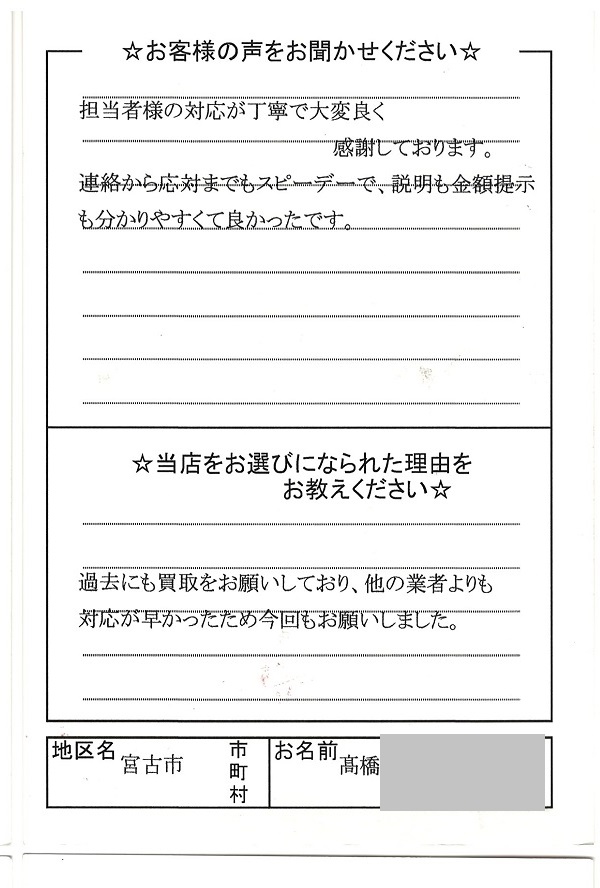 ☆お客様の声をお聞かせください☆
担当者様の対応が丁寧で大変良く
感謝しております。
連絡から応対までもスピーデーで、説明も金額提示
も分かりやすくて良かったです。
☆当店をお選びになられた理由を
お教えください☆
過去にも買取をお願いしており、他の業者よりも
対応が早かったため今回もお願いしました。
地区名 宮古市 市町村 お名前 髙橋